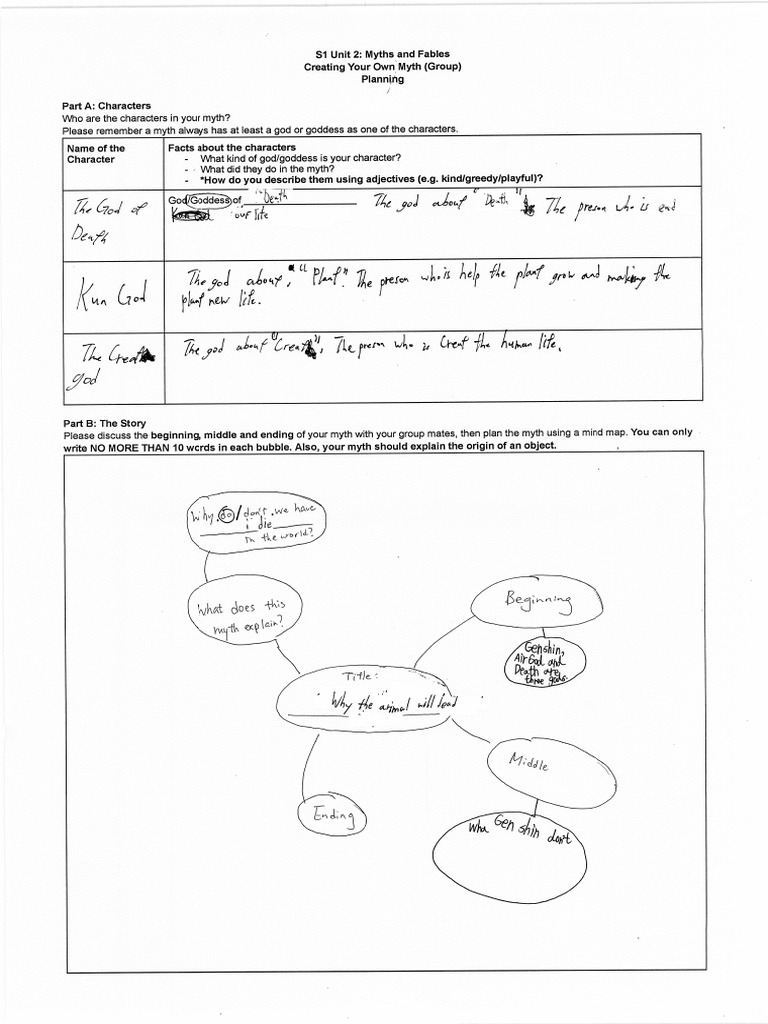 S1 Unit 2: Myths and Fables
Creating Your Own Myth (Group)
Planning
Part A: Characters
Who are the characters in your myth?
Please remember a myth always has at least a god or goddess as one of the characters.
Name of the
Character
Facts about the characters
- What kind of god/goddess is your character?
- What did they do in the myth?
- *How do you describe them using adjectives (e.g. kind/greedy/playful)?
The God of
Death
God/Goddess of Death The god about "Death" The preson who is end
our life
Kun God
The god about, "Plant". The preson who is help the plant grow and making the
plant new life.
The Creat
god
The god about "Creat", The preson who is Creat the human life.
Part B: The Story
Please discuss the beginning, middle and ending of your myth with your group mates, then plan the myth using a mind map. You can only
write NO MORE THAN 10 words in each bubble. Also, your myth should explain the origin of an object.
Why do/don't we have
die
in the world?
What does this
myth explain?
Beginning
Genshin,
Air God and
Death are
three gods.
Title:
Why the animal will dead
Middle
Wha Genshin don't
Ending